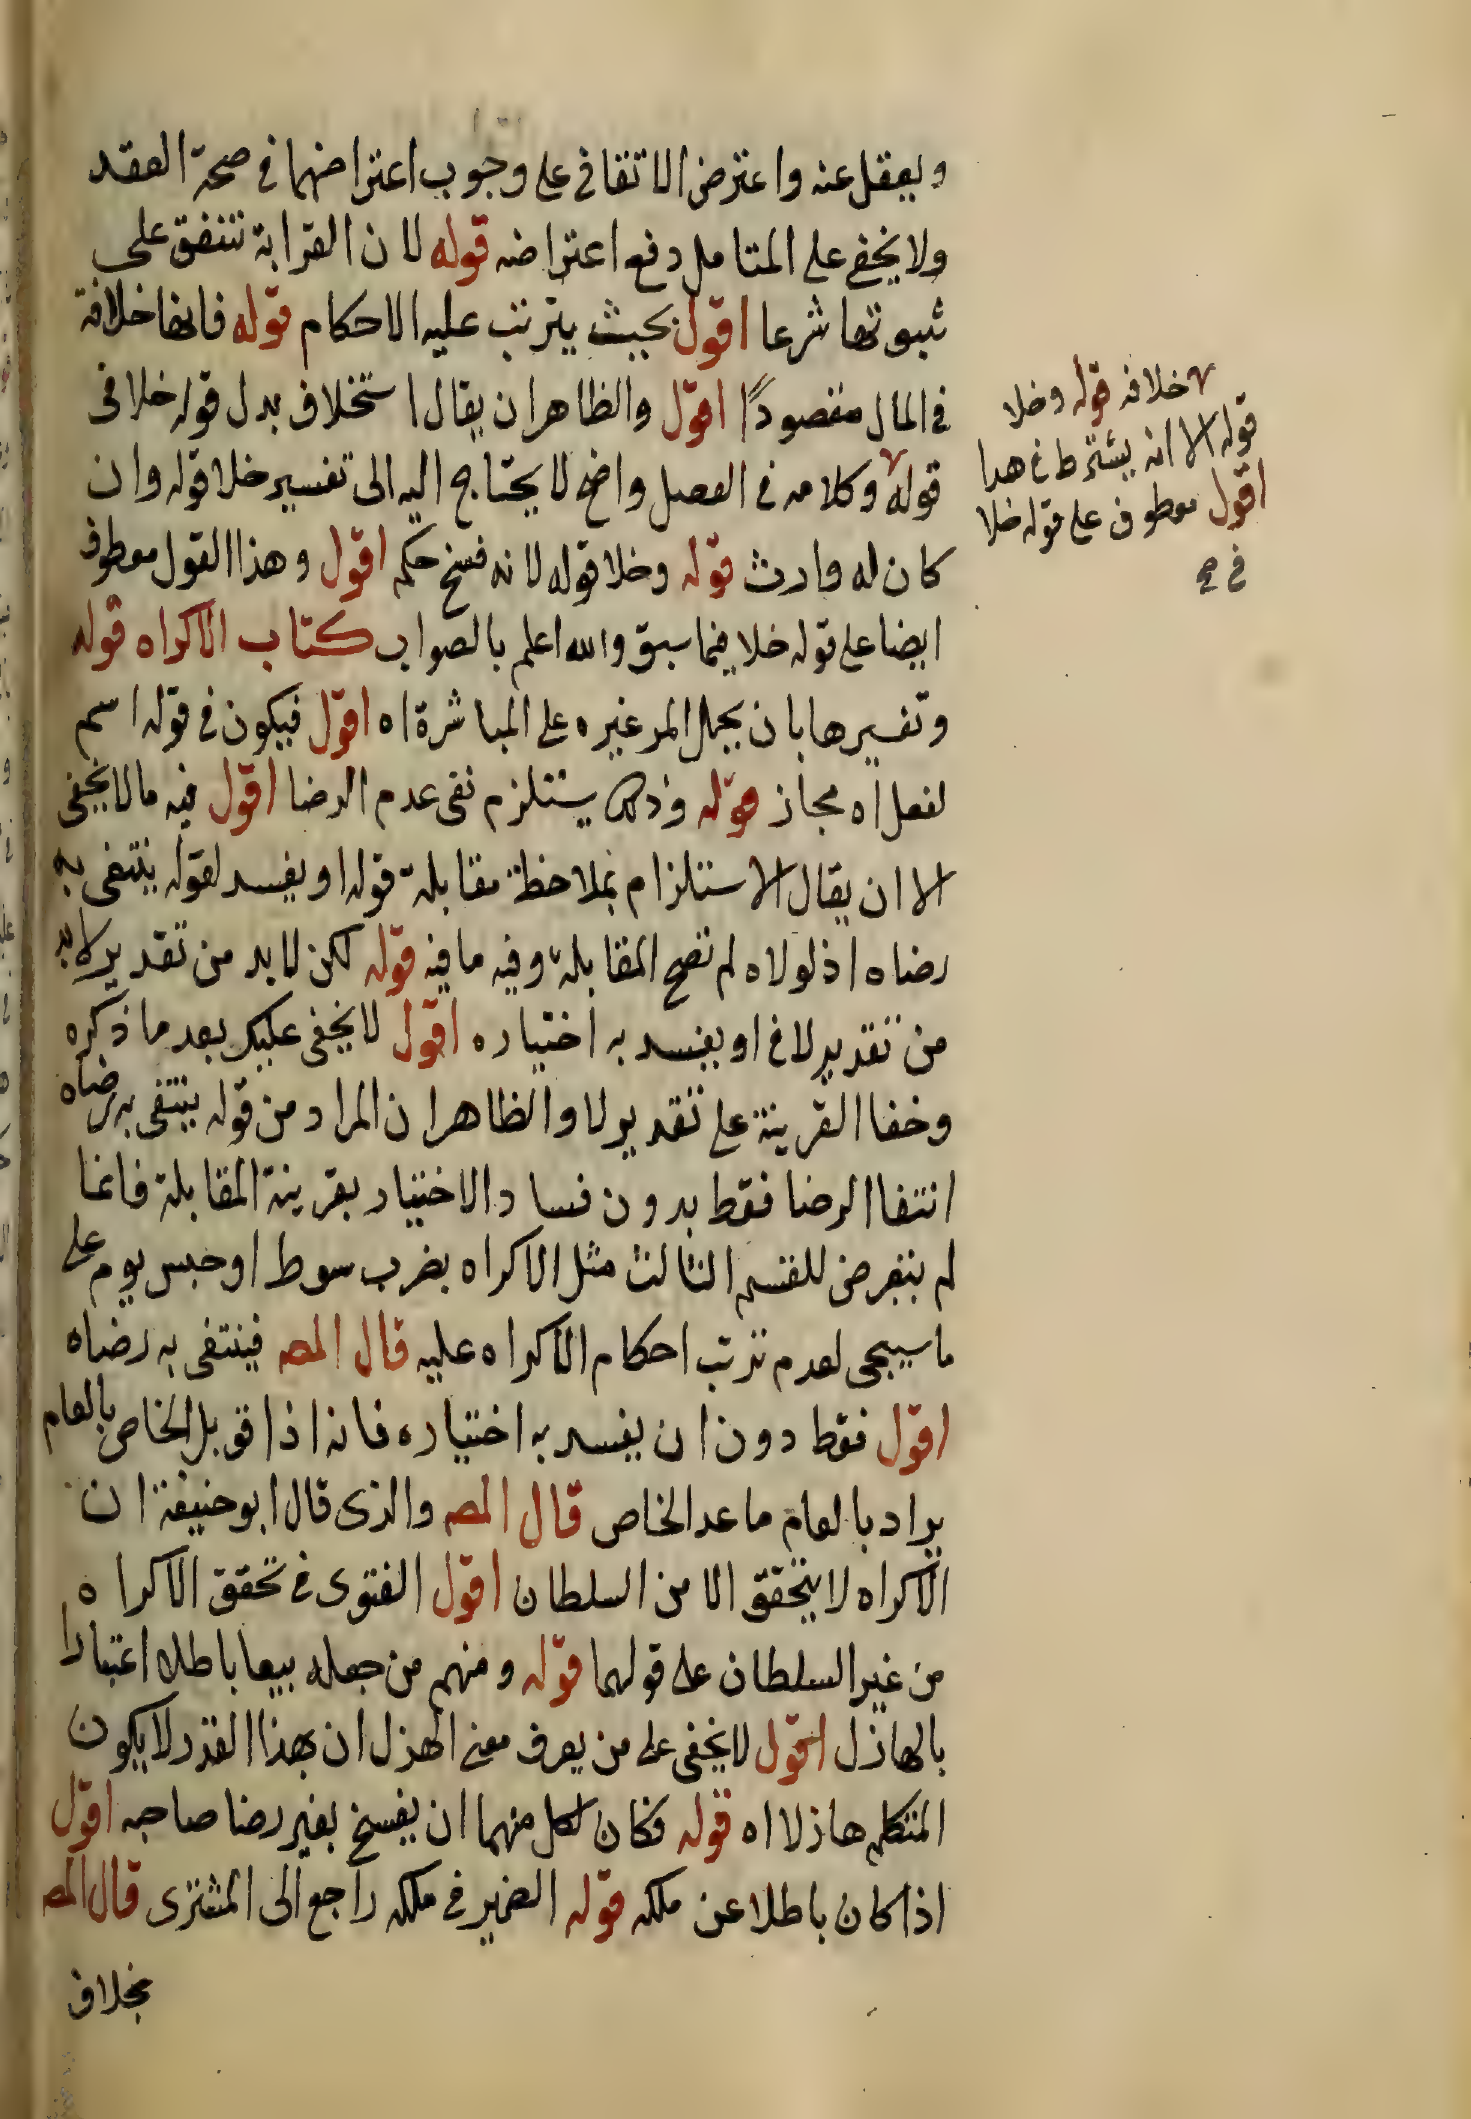 ويعقل عنه واعترض الاتقانى على وجوب اعتراضهما فى صحة العقد
ولا يخفى على المتامل دفع اعتراضه قوله لان القرابة تتفق على
ثبوتها شرعا اقول بحيث يترتب عليه الاحكام قوله فانها خلافة
فى المال مقصودًا اقول والظاهر ان يقال استخلاف بدل قوله خلافى
قوله وكلامه فى الفصل واضح لا يحتاج اليه الى تفسير خلا قوله وان
كان له وارث قوله وخلا قوله لانه فسخ حكم اقول وهذا القول معطوف
ايضا على قوله خلا فيما سبق والله اعلم بالصواب كتاب الاكراه قوله
وتفسيرها بان يحمل المر غيره على المباشرة اه اقول فيكون فى قوله اسم
لفعل اه مجاز قوله وذلك يستلزم نفى عدم الرضا اقول فيه ما لا يخفى
الا ان يقال الاستلزام بملاحظة مقابلة قوله او يفسد لقوله ينتفى به
رضاه اذ لولاه لم تصح المقابلة وفيه ما فيه قوله لكن لابد من تقدير لابد
من تقدير لا فى او يفسد به اختياره اقول لا يخفى عليك بعد ما ذكره
وخفا القرينة على تقدير لا والظاهر ان المراد من قوله ينتفى به رضاه
انتفا الرضا فقط بدون فساد الاختيار بقرينة المقابلة فانما
لم يتعرض للقسم الثالث مثل الاكراه بضرب سوط او حبس يوم على
ما سيجى لعدم ترتب احكام الاكراه عليه قال المصـ فينتفى به رضاه
اقول فقط دون ان يفسد به اختياره فانه اذا قوبل الخاص بالعام
يراد بالعام ما عدا الخاص قال المصـ والذى قال ابو حنيفة ان
الاكراه لا يتحقق الا من السلطان اقول الفتوى فى تحقق الاكراه
من غير السلطان على قولهما قوله ومنهم من جعله بيعا باطلا اعتبارا
بالهازل اقول لا يخفى على من يعرف معنى الهزل ان بهذا القدر لا يكون
المتكلم هازلا اه قوله فكان لكل منهما ان يفسخ بغير رضا صاحبه اقول
اذا كان باطلا عن ملكه قوله الضمير فى ملكه راجع الى المشترى قال المصـ
بخلاف
خلافه قوله وخلا
قوله الا انه يشترط فى هدا
اقول معطوف على قوله خلا
فى صح